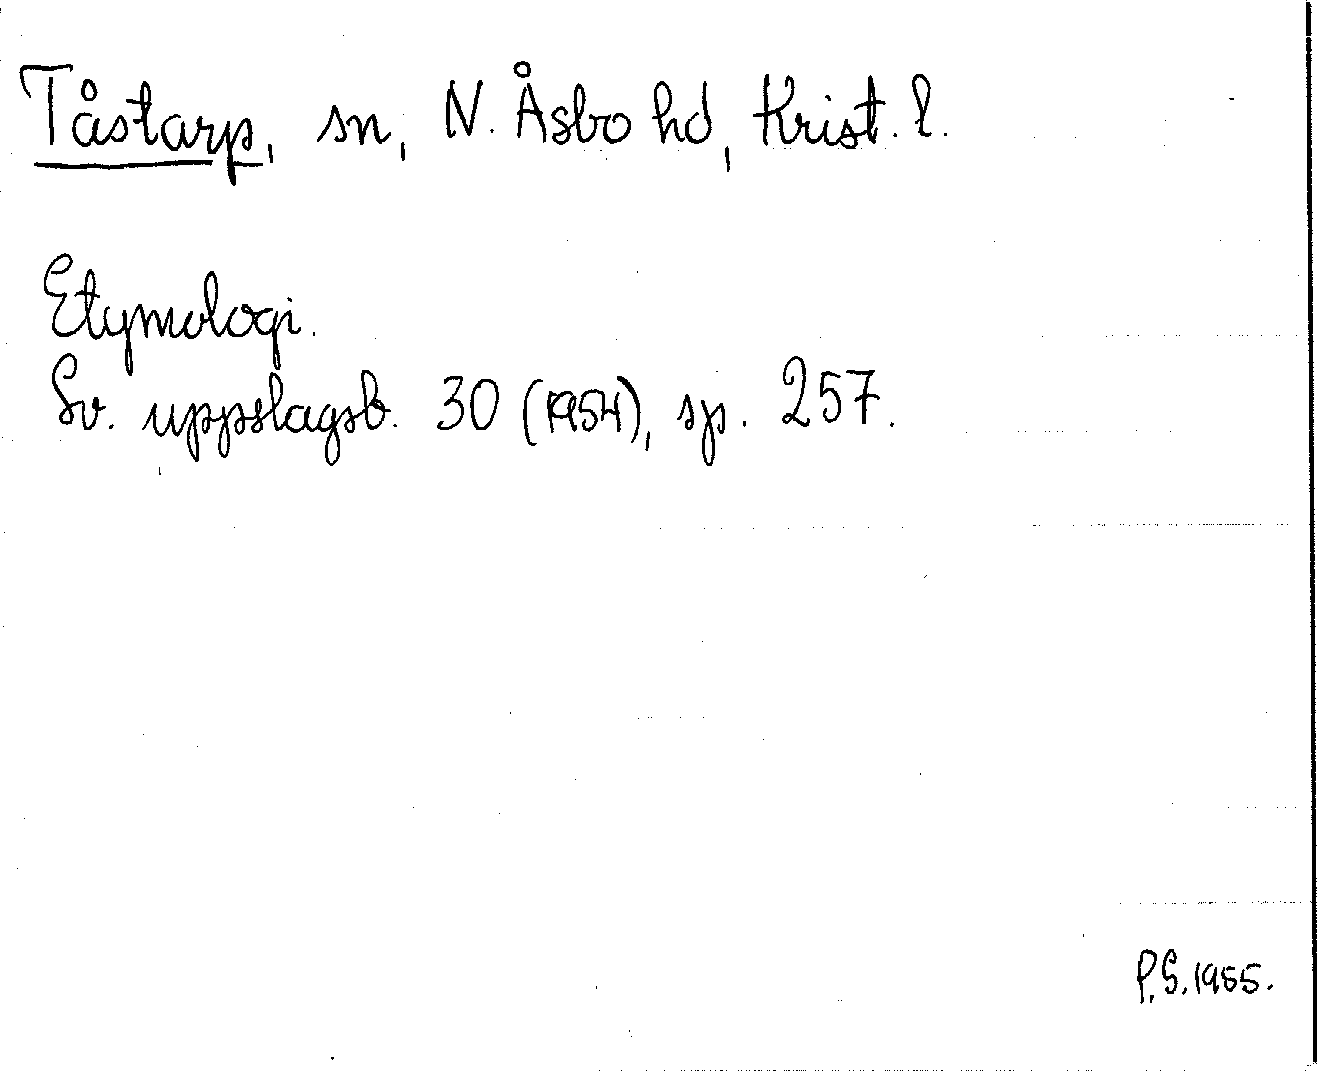 Tåstarp, sn, N. Åsbo hd, Krist. l.
Etymologi.
Sv. uppslagsb. 30 (1954), sp. 257.
P.S. 1955.